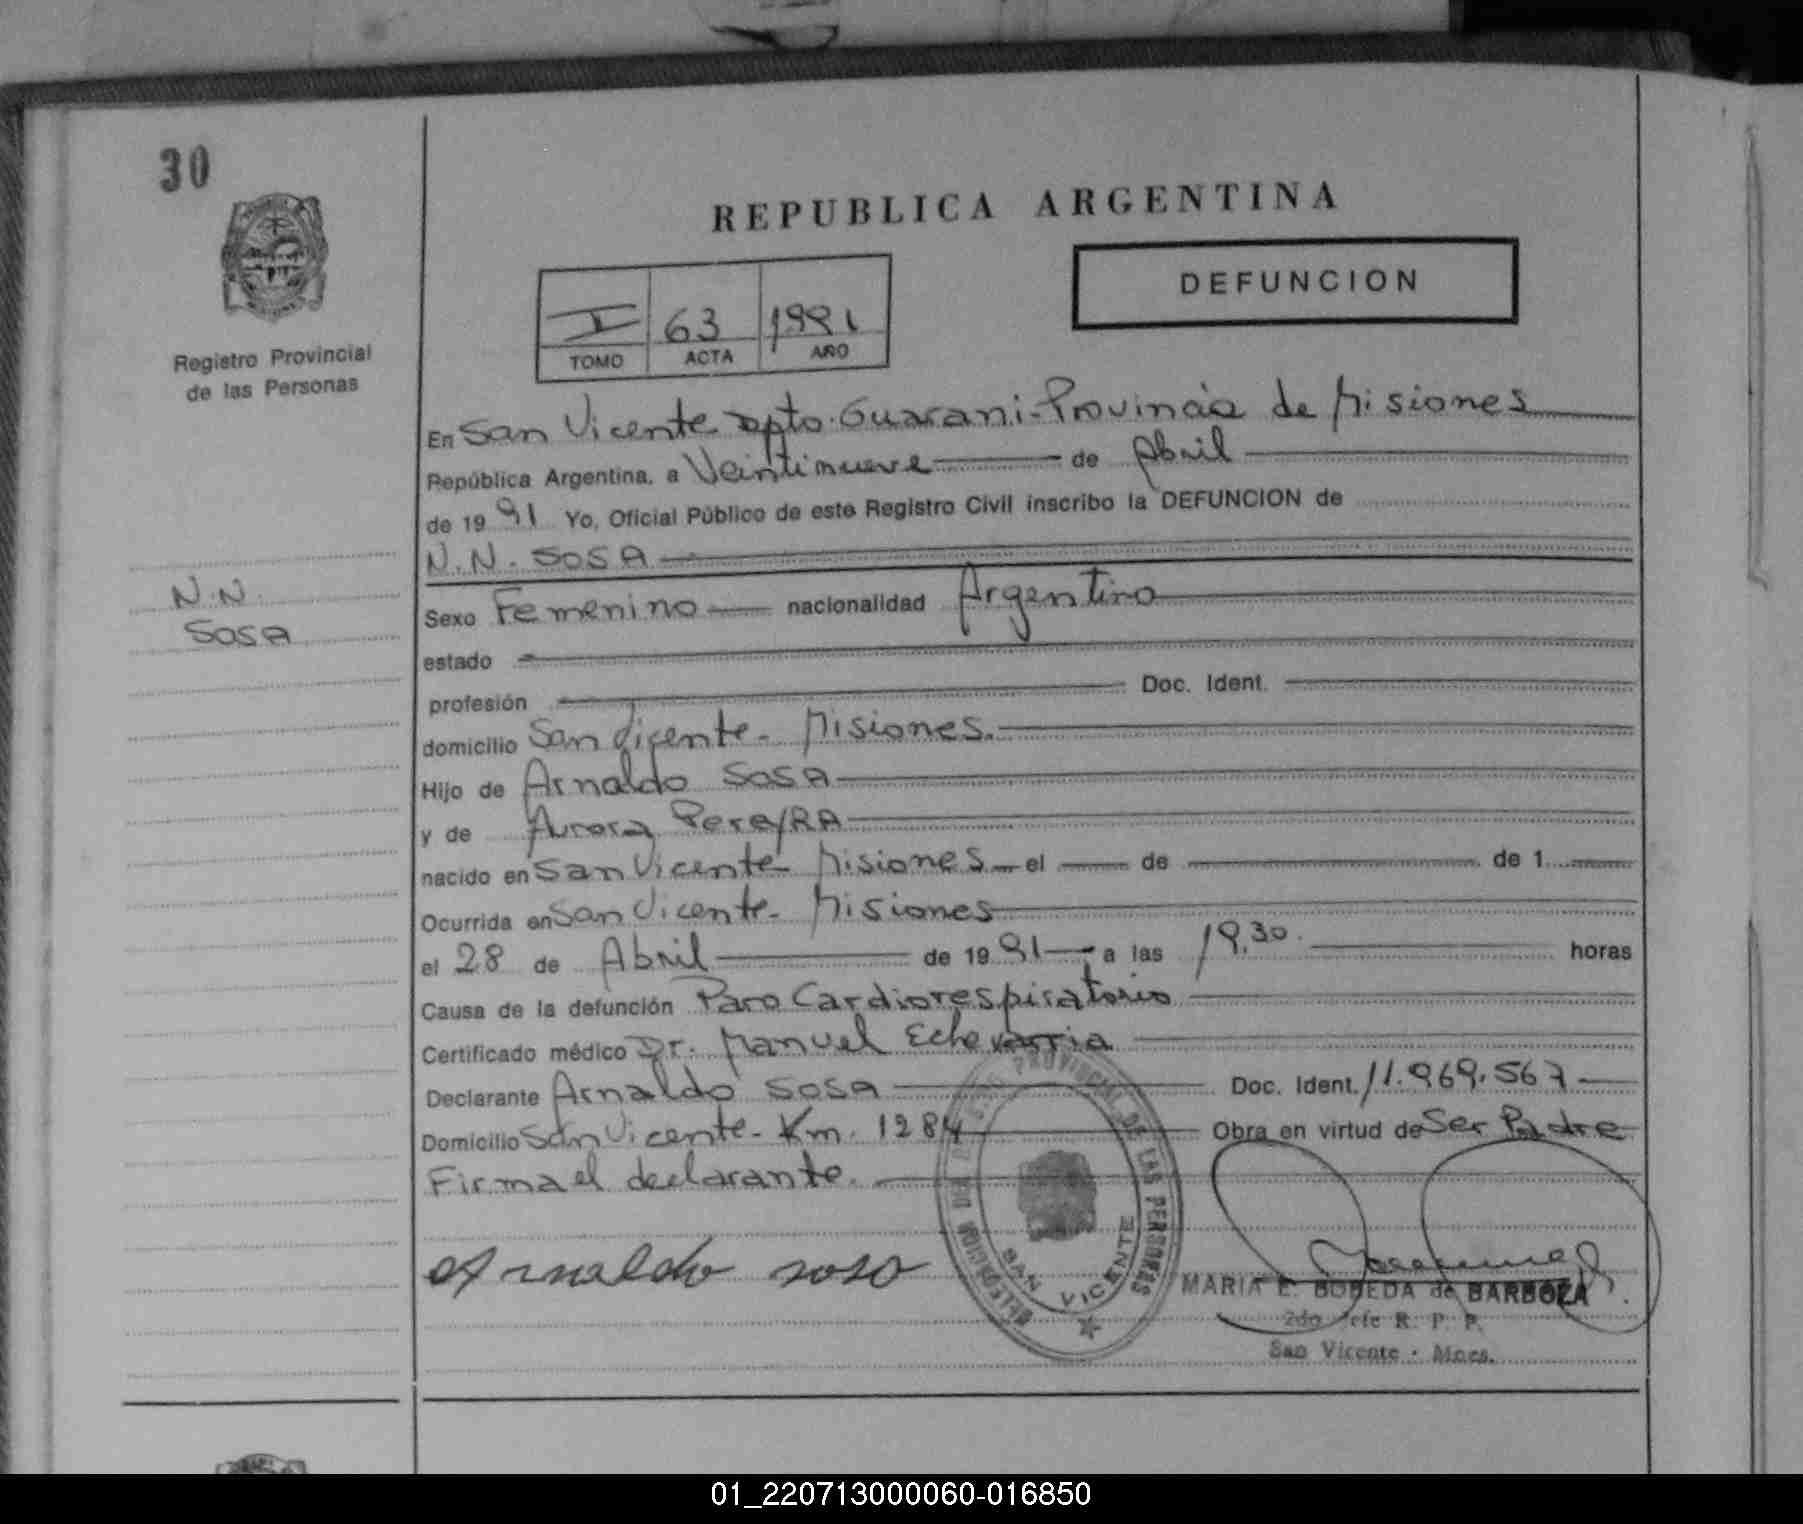 30
Registro Provincial
de las Personas
REPUBLICA ARGENTINA
DEFUNCION
I 63 1991
TOMO ACTA AÑO
En San Vicente Dpto. Guarani-Provincia de Misiones
República Argentina, a Veintinueve de Abril
de 1991 Yo, Oficial Público de este Registro Civil inscribo la DEFUNCION de
N.N. SOSA
N.N.
SOSA
Sexo Femenino nacionalidad Argentino
estado
profesión Doc. Ident.
domicilio San Vicente - Misiones.
Hijo de Arnaldo SOSA
y de Aurora PereyRA
nacido en San Vicente - Misiones el de de 1
Ocurrida en San Vicente - Misiones
el 28 de Abril de 1991 a las 19,30. horas
Causa de la defunción Paro Cardiorespiratorio
Certificado médico Dr. Manuel Echevarria
Declarante Arnaldo SOSA Doc. Ident. 11.969.567
Domicilio San Vicente - Km. 1284 Obra en virtud de Ser Padre
Firma el declarante.
Arnaldo soso
DELEGACION REGISTRO PROVINCIAL DE LAS PERSONAS
SAN VICENTE
MARIA E. BOBEDA de BARBOZA
2do Jefe R. P. P.
San Vicente - Mnes.
01_220713000060-016850